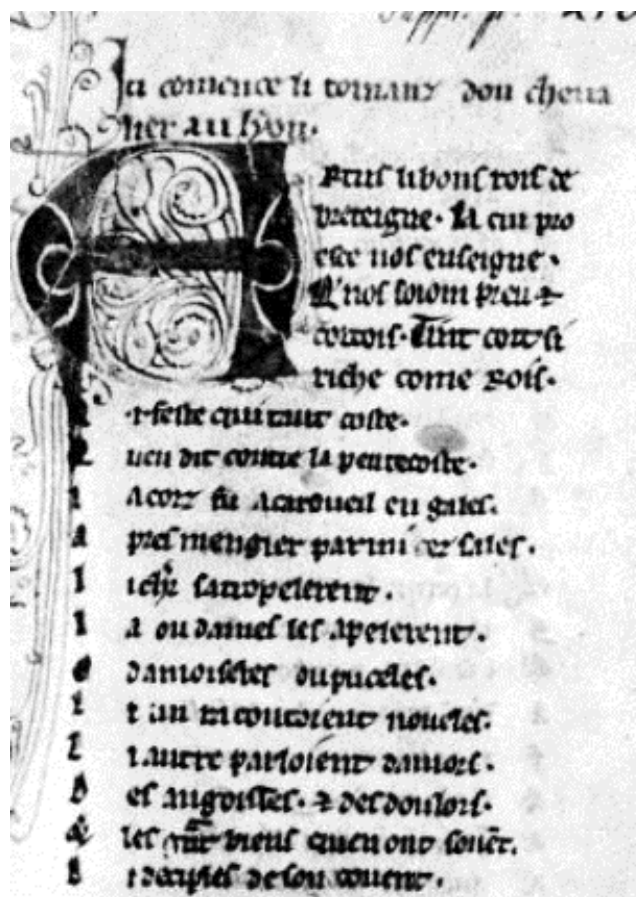 Ci comence li romanz dou cheva
lier au lyon.
Artus li bons rois de
breteigne. La cui pro
esce nos enseigne.
Q' nos soiom preu &
cortois. Tint cort si
riche come rois.
A t feste qui tant coste.
Q u en dit contre la pentecoste.
l a corz fu a caroueil en gales.
a pres mengier parmi ces sales.
l i chr satropelerent.
l a ou dames les apelerent.
o damoiseles ou puceles.
l i un racontoient noueles.
l i autre parloient damors.
d es angoisses. & des doulors.
& des biens quen ont souēt.
l i deciples de son couent.